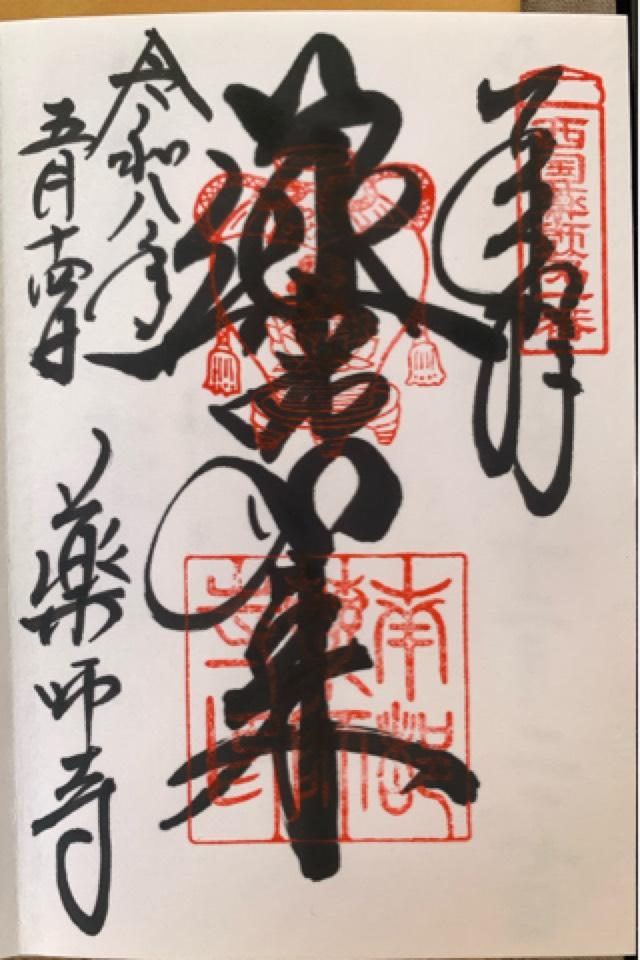 西国薬師第一番
奉拝
薬師如来
南都薬師寺印
令和八年
五月十四日
薬師寺